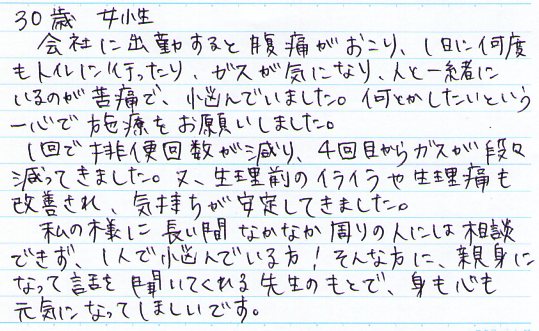 30歳 女性
会社に出勤すると腹痛がおこり、1日に何度
もトイレに行ったり、ガスが気になり、人と一緒に
いるのが苦痛で、悩んでいました。何とかしたいという
一心で施療をお願いしました。
1回で排便回数が減り、4回目からガスが段々
減ってきました。又、生理前のイライラや生理痛も
改善され、気持ちが安定してきました。
私の様に長い間なかなか周りの人には相談
できず、1人で悩んでいる方!そんな方に、親身に
なって話を聞いてくれる先生のもとで、身も心も
元気になってほしいです。